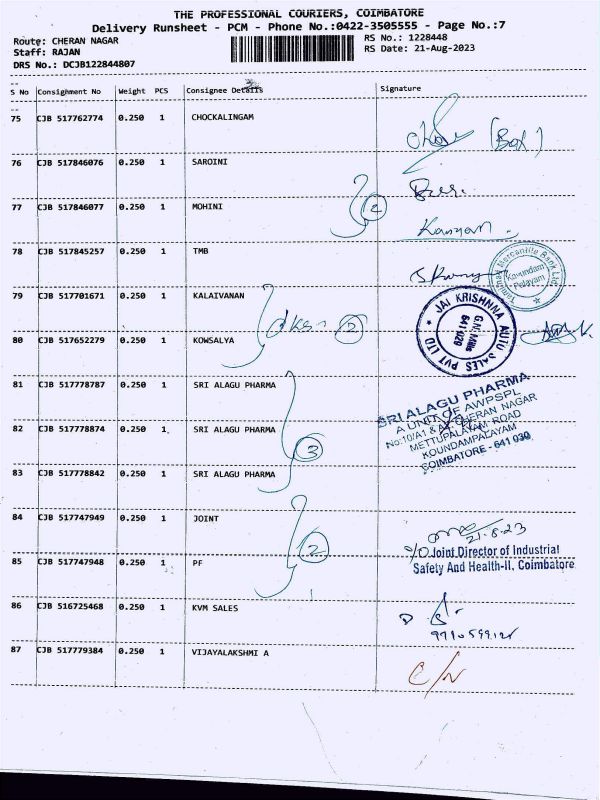 THE PROFESSIONAL COURIERS, COIMBATORE
Delivery Runsheet - PCM - Phone No.:0422-3505555 - Page No.:7
Route: CHERAN NAGAR RS No.: 1228448
Staff: RAJAN RS Date: 21-Aug-2023
DRS No.: DCJB122844807
S No Consighment No Weight PCS Consignee Details Signature
75 CJB 517762774 0.250 1 CHOCKALINGAM
76 CJB 517846076 0.250 1 SAROINI
77 CJB 517846077 0.250 1 MOHINI 2
78 CJB 517845257 0.250 1 TMB
Tamilnad Mercantile Bank Ltd
Koundam
Palayam
79 CJB 517701671 0.250 1 KALAIVANAN
80 CJB 517652279 0.250 1 KOWSALYA 2
JAI KRISHNNA AUTO SALES PVT LTD
G.N. Mills
641 029
81 CJB 517778787 0.250 1 SRI ALAGU PHARMA
82 CJB 517778874 0.250 1 SRI ALAGU PHARMA
83 CJB 517778842 0.250 1 SRI ALAGU PHARMA
3
SRI ALAGU PHARMA
A UNIT OF AWPSPL
No:10/A1 & CHERAN NAGAR
METTUPALAYAM ROAD
KOUNDAMPALAYAM
COIMBATORE - 641 030
84 CJB 517747949 0.250 1 JOINT
21.8.23
2
Joint Director of Industrial
Safety And Health-II, Coimbatore
85 CJB 517747948 0.250 1 PF
86 CJB 516725468 0.250 1 KVM SALES
87 CJB 517779384 0.250 1 VIJAYALAKSHMI A
C/N